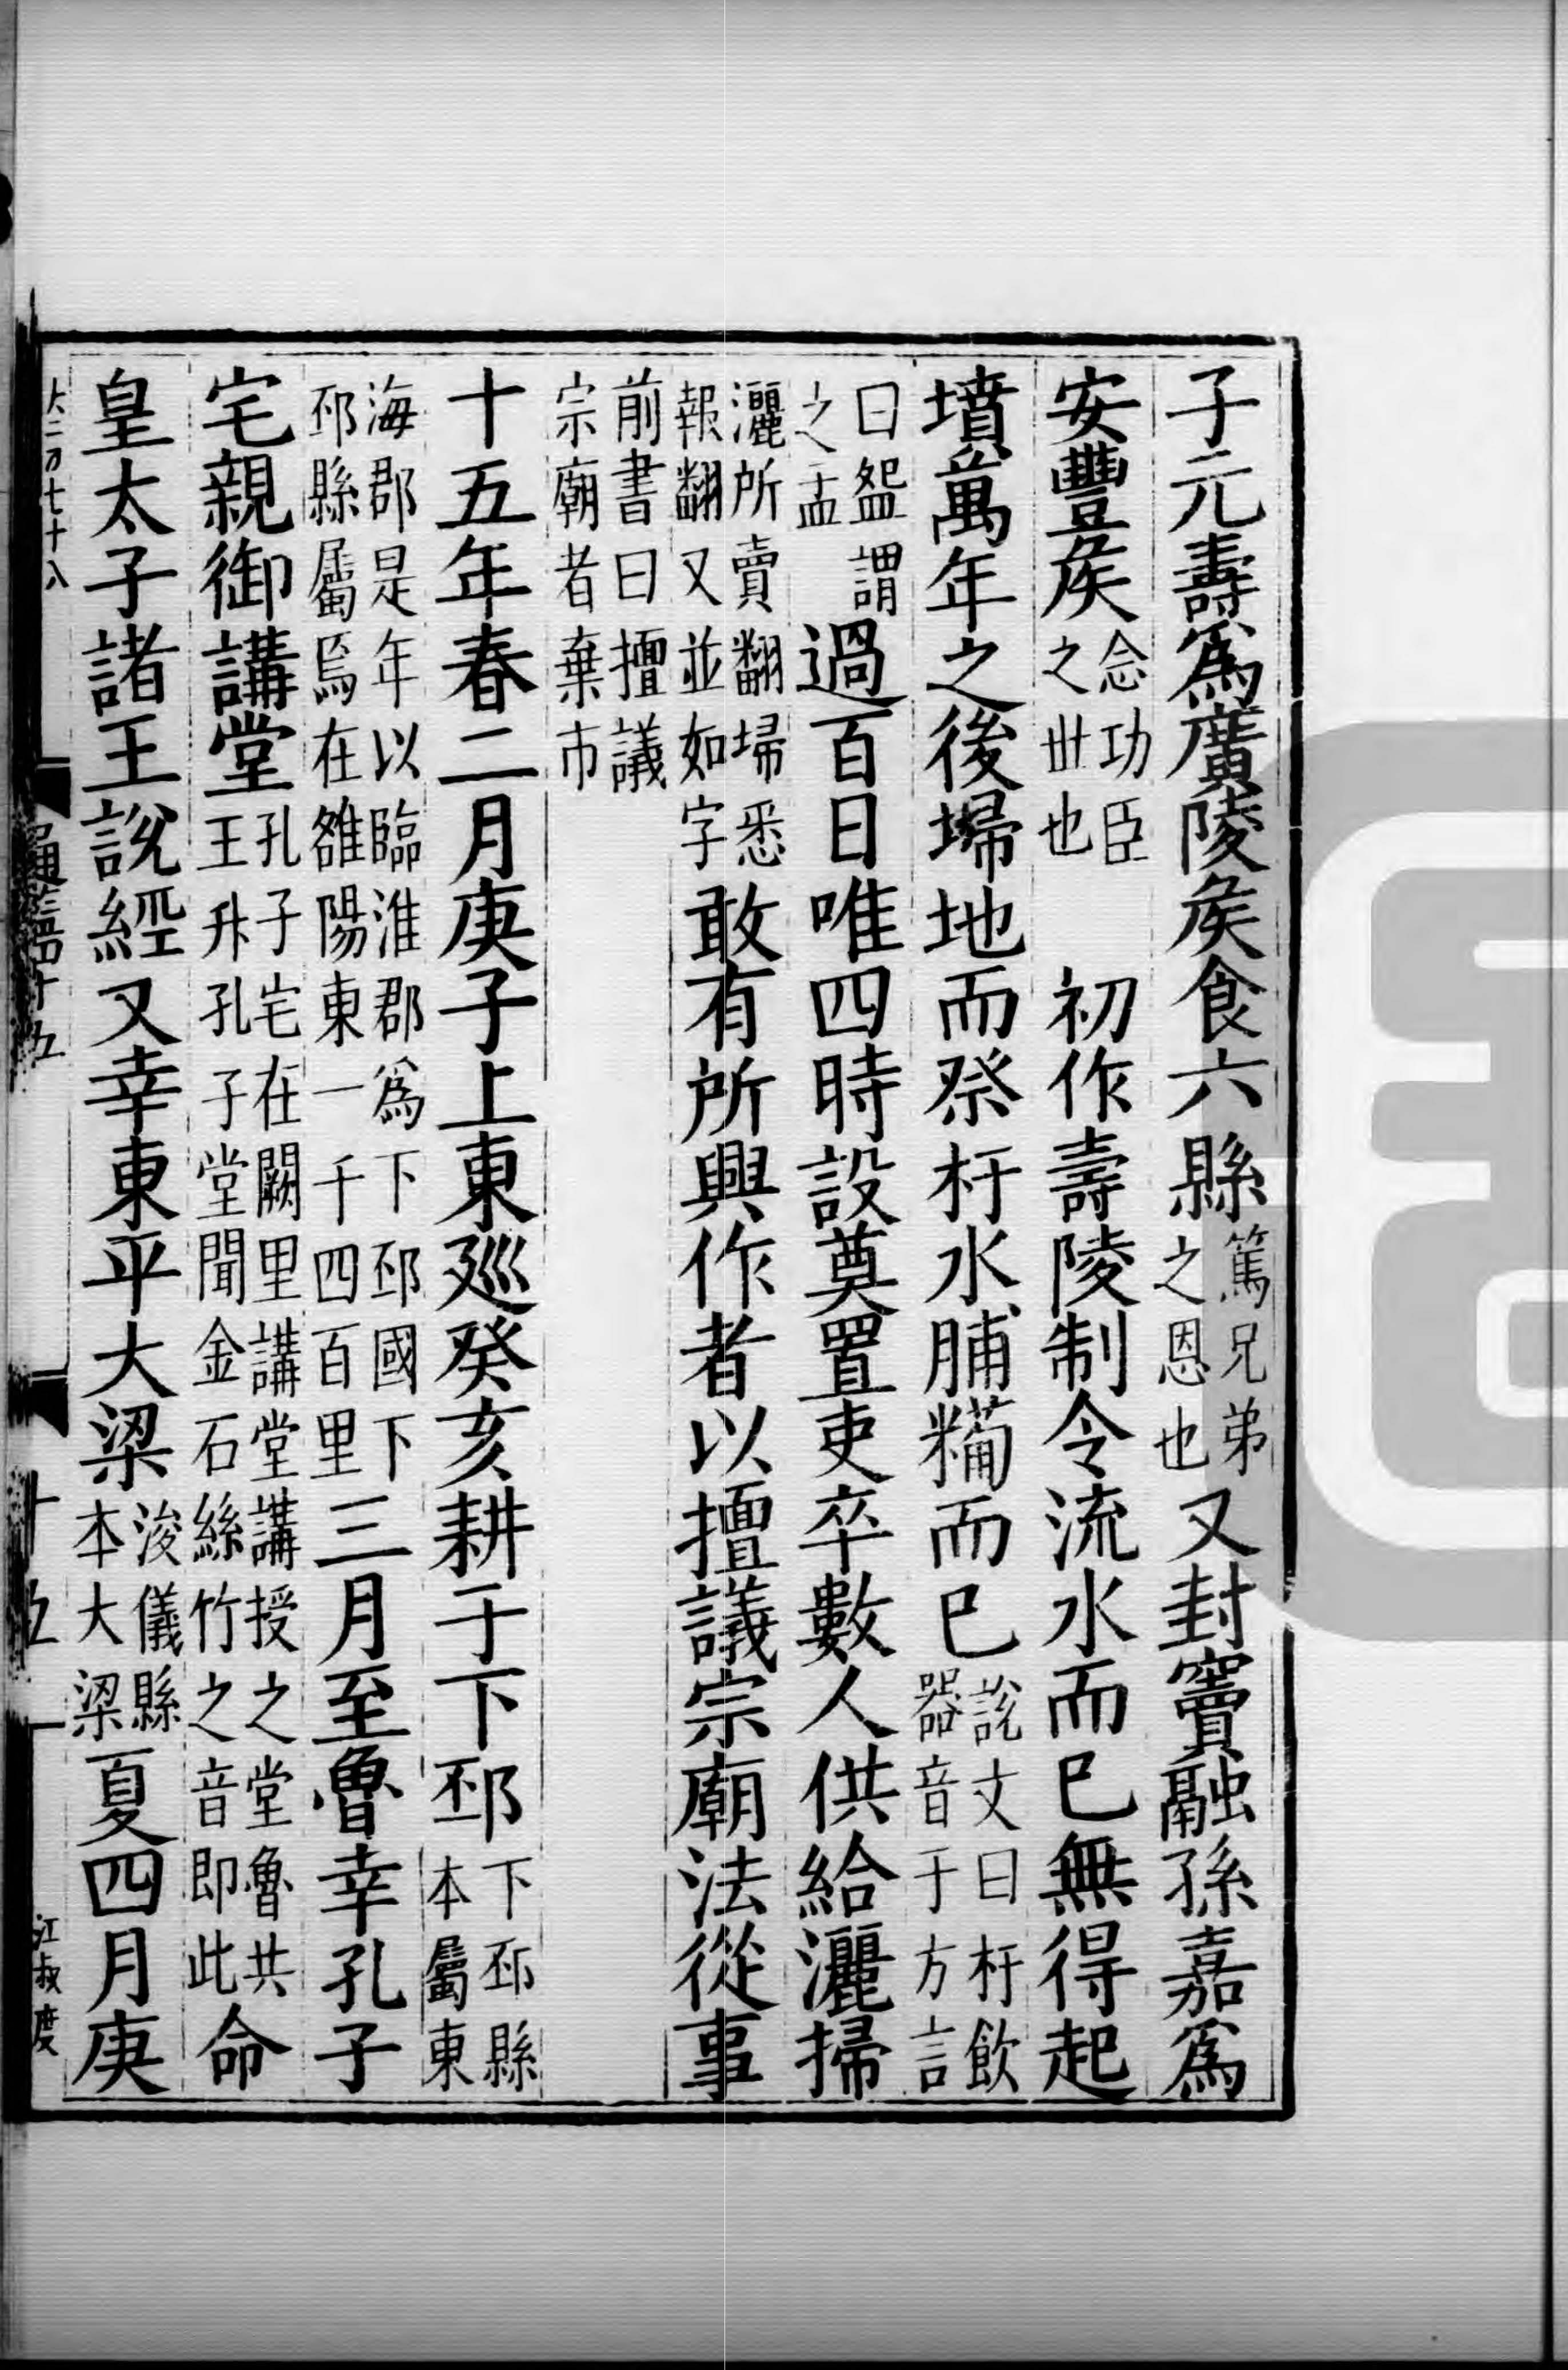 子元壽爲廣陵矦食六縣篤兄弟之恩也又封竇融孫嘉爲
安豐矦念功臣之世也初作壽陵制令流水而巳無得起
墳萬年之後埽地而祭杅水脯糒而巳說文曰杅飲器音于方言
曰盌謂之盂過百日唯四時設奠置吏卒數人供給灑掃
灑所賣翻埽悉報翻又並如字敢有所興作者以擅議宗廟法從事
前書曰擅議宗廟者棄市
十五年春二月庚子上東廵癸亥耕于下邳下邳縣本屬東
海郡是年以臨淮郡爲下邳國下邳縣屬焉在雒陽東一千四百里三月至魯幸孔子
宅親御講堂孔子宅在闕里講堂講授之堂魯共王升孔子堂聞金石絲竹之音即此命
皇太子諸王說經又幸東平大梁浚儀縣本大梁夏四月庚
通鑑四十五
十五
江叔度